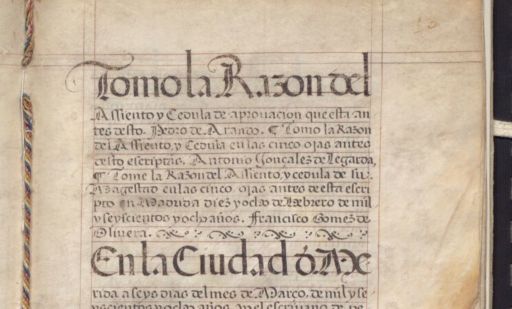 Tomo la Razon del
Assiento y Cedula de aprouacion que esta an
tes desto. Pedro de Arando. ¶ Tomo la Razon
del Assiento, y Cedula en las cinco ojas antes
desto escriptas. Antonio Gonçalez de Legarda,
¶ Tome la Razon del Assiento, y cedula de su
Magestad en las cinco ojas antes de esta escri
pto en Madrid a diez y ocho de Hebrero de mil
y seyscientos y ocho años. Francisco Gomez de
Olivera.
En la Ciudad ô Me
rida a seys dias del mes de Março, de mil y se
yscientos y ocho años, an el escriuano de